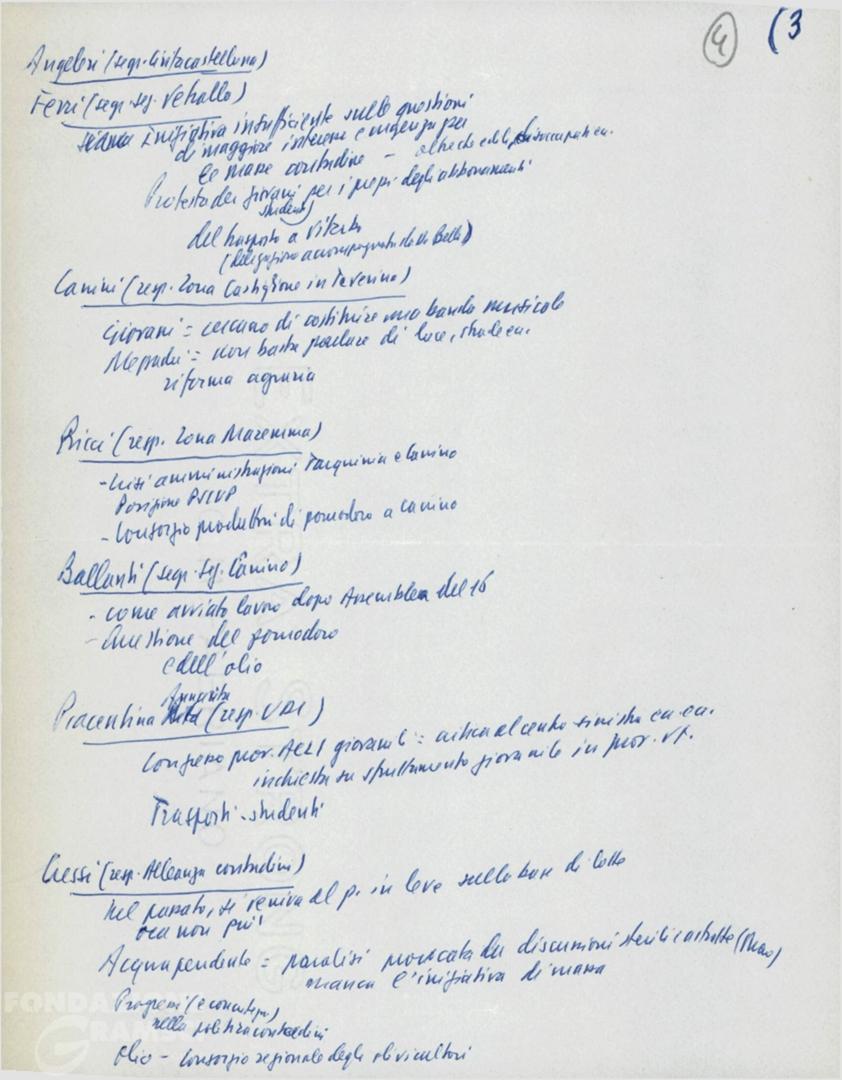 4 (3
Angeloni (segr. Civitacastellana)
Ferri (segr. sez. Vetralla)
Iniziativa insufficiente sulle questioni
di maggiore interesse e urgenza per
le masse contadine — oltre che edili, disoccupati ecc.
Protesta dei giovani per i prezzi degli abbonamenti
studenti
del trasporto a Viterbo
(delegazione accompagnata da La Bella)
Canini (resp. Zona Castiglione in Teverina)
Giovani = cercano di costituire una banda musicale
Mezzadri = non basta parlare di luce, strade ecc.
riforma agraria
Ricci (resp. Zona Maremma)
- Crisi amministrazioni Tarquinia e Canino
Posizione PSIUP
- Consorzio produttori di pomodoro a Canino
Ballanti (segr. sez. Canino)
- come avviato lavoro dopo Assemblea del 16
- Questione del pomodoro
e dell'olio
Annarita
Piacentina (resp. UDI)
Congresso prov. ACLI giovanili = critica al centro sinistra ecc. ecc.
inchiesta su sfruttamento giovanile in prov. VT.
Trasporti - studenti
Cressi (resp. Alleanza contadini)
Nel passato, si veniva al p. in leve sulla base di lotte
ora non più!
Acquapendente = paralisi provocata da discussioni sterili e astratte (Mao)
manca l'iniziativa di massa
Progressi (e consensi)
nella politica contadini
olio — Consorzio regionale degli olivicultori
FONDAZIONE
GRAMSCI